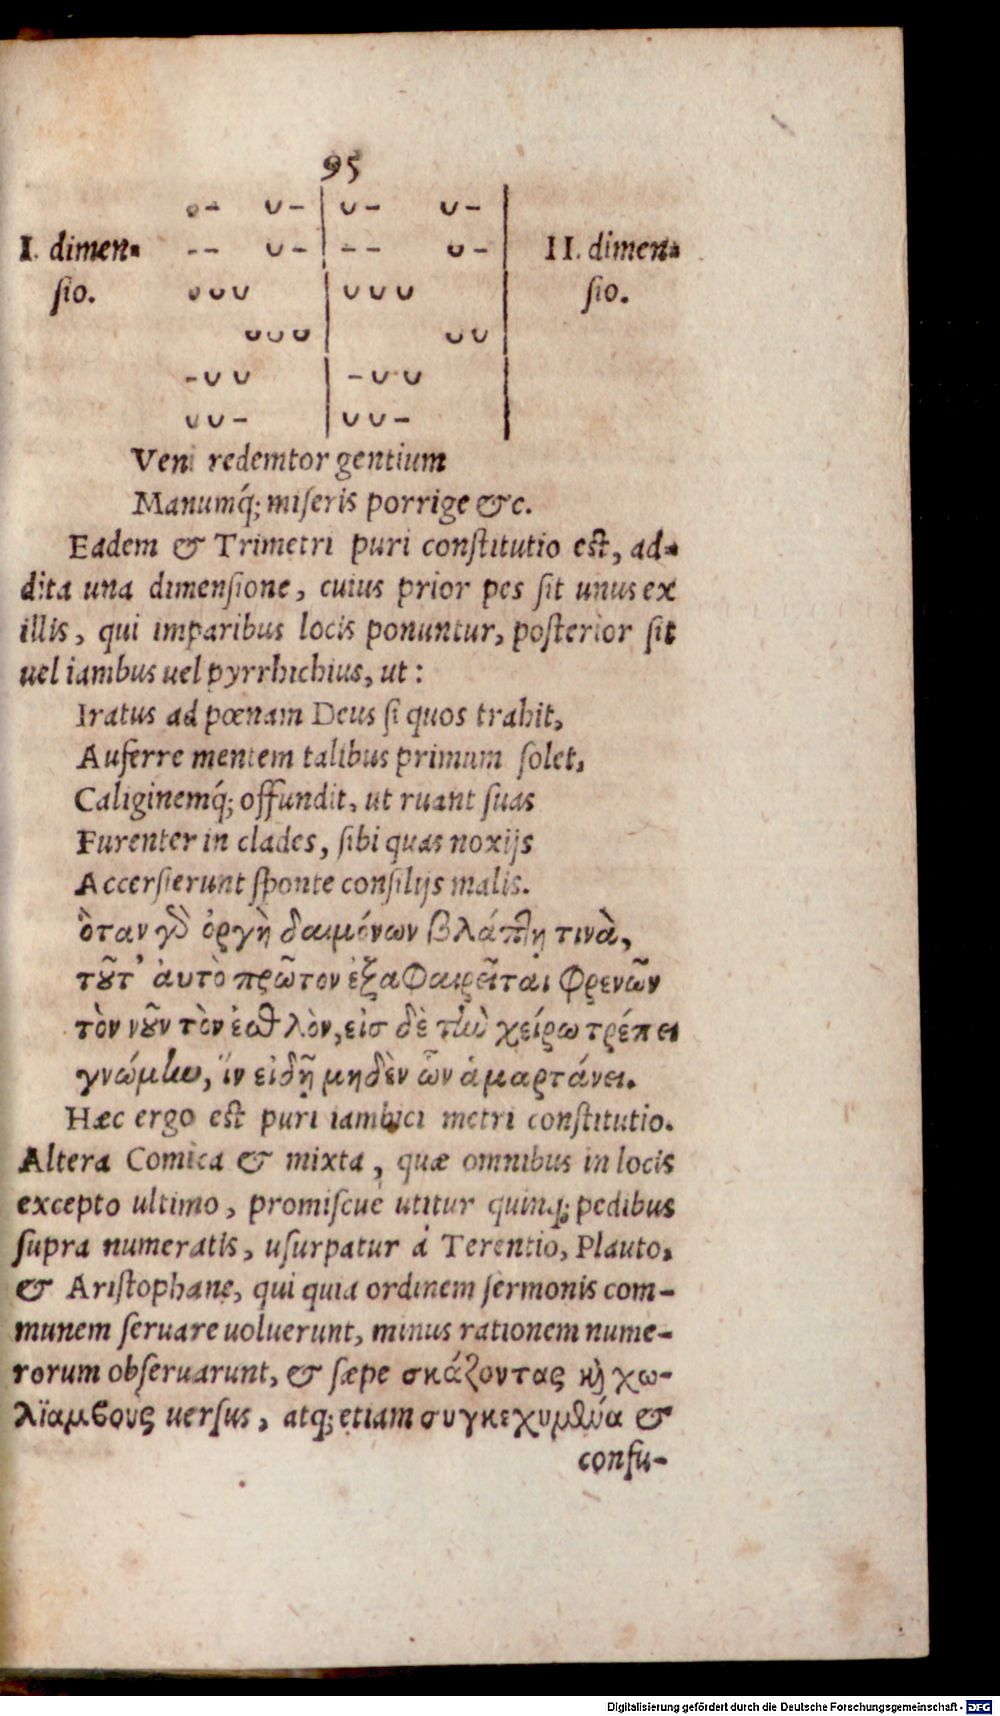 95
ᴗ– ᴗ– | ᴗ– ᴗ– |
I. dimen- –– ᴗ– | –– ᴗ– | II. dimen-
ſio. ᴗᴗᴗ | ᴗᴗᴗ | ſio.
ᴗᴗᴗ | ᴗᴗ |
–ᴗᴗ | –ᴗᴗ |
ᴗᴗ– | ᴗᴗ– |
Veni redemtor gentium
Manumq́; miſeris porrige &c.
Eadem & Trimetri puri conſtitutio eſt, ad-
dita una dimenſione, cuius prior pes ſit unus ex
illis, qui imparibus locis ponuntur, poſterior ſit
uel iambus uel pyrrhichius, ut:
Iratus ad pœnam Deus ſi quos trahit,
Auferre mentem talibus primum ſolet,
Caliginemq́; offundit, ut ruant ſuas
Furenter in clades, ſibi quas noxijs
Accerſierunt ſponte conſilijs malis.
ὅταν γὸ ὀργὴ δαιμόνων βλάπτῃ τινὰ,
τοῦτ' ἀυτὸ πρῶτον ἐξαφαιρεῖται φρενῶν
τὸν νοῦν τὸν ἐσθλὸν, εἰσ δὲ τὴν χείρω τρέπει
γνώμην, ἵν εἰδῇ μηδὲν ὧν ἁμαρτάνει.
Hæc ergo eſt puri iambici metri conſtitutio.
Altera Comica & mixta, quæ omnibus in locis
excepto ultimo, promiſcuè utitur quinq; pedibus
ſupra numeratis, uſurpatur à Terentio, Plauto,
& Ariſtophane, qui quia ordinem ſermonis com-
munem ſeruare uoluerunt, minus rationem nume-
rorum obſeruarunt, & ſæpe σκάζοντας ϗ χω-
λϊαμβους uerſus, atq; etiam συγκεχυμθμα &
confu-
Digitalisierung gefördert durch die Deutsche Forschungsgemeinschaft - DFG